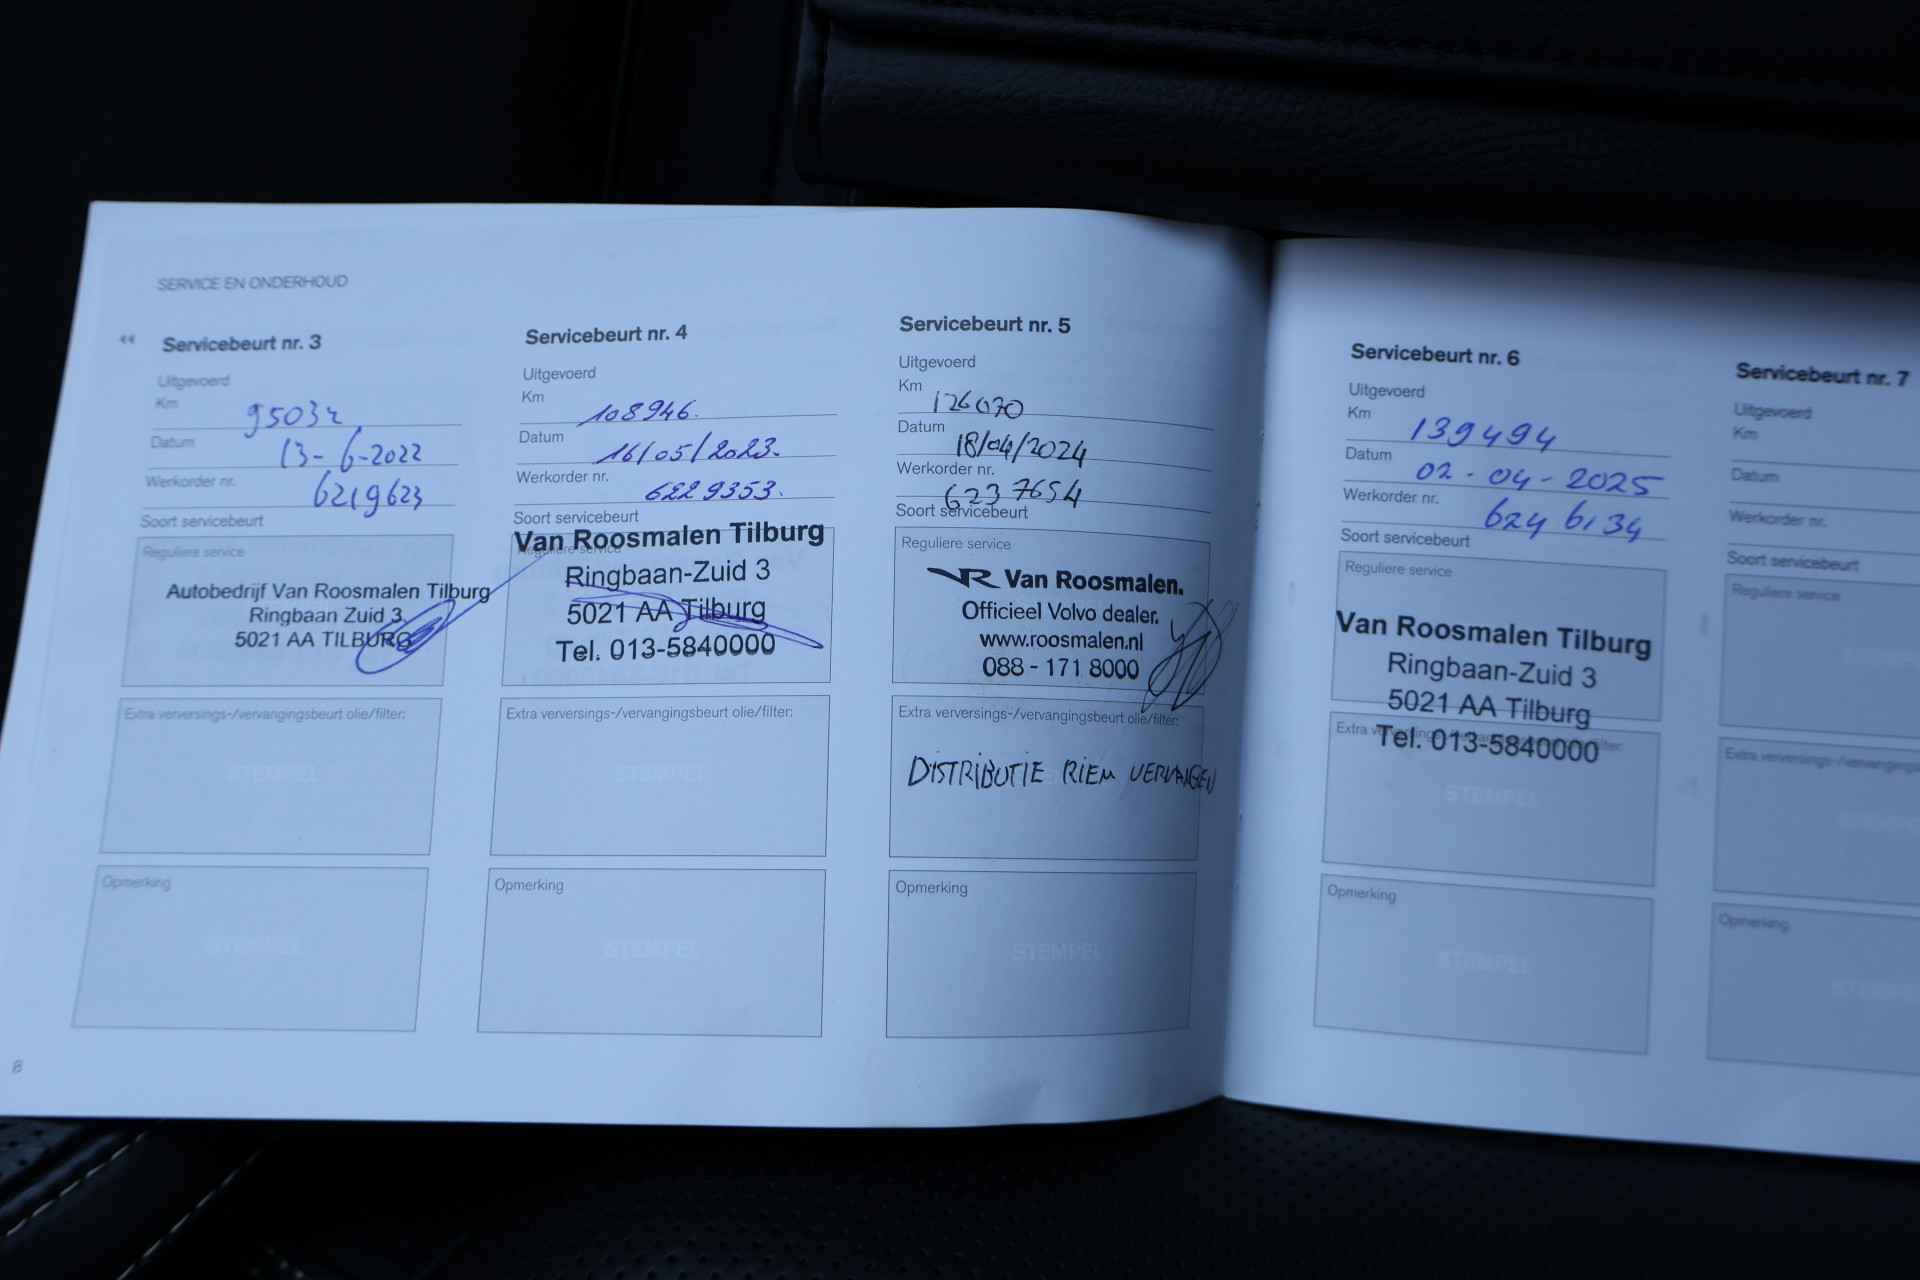 SERVICE EN ONDERHOUD
Servicebeurt nr. 3
Uitgevoerd
Km
95032
Datum
13-6-2022
Werkorder nr.
6219623
Soort servicebeurt
Reguliere service
Autobedrijf Van Roosmalen Tilburg
Ringbaan Zuid 3
5021 AA TILBURG
Extra verversings-/vervangingsbeurt olie/filter:
STEMPEL
Opmerking
STEMPEL
8
Servicebeurt nr. 4
Uitgevoerd
Km
108946.
Datum
16/05/2023.
Werkorder nr.
6229353.
Soort servicebeurt
Reguliere service
Van Roosmalen Tilburg
Ringbaan-Zuid 3
5021 AA Tilburg
Tel. 013-5840000
Extra verversings-/vervangingsbeurt olie/filter:
STEMPEL
Opmerking
STEMPEL
Servicebeurt nr. 5
Uitgevoerd
Km
126070
Datum
18/04/2024
Werkorder nr.
6237654
Soort servicebeurt
Reguliere service
VR Van Roosmalen.
Officieel Volvo dealer.
www.roosmalen.nl
088 - 171 8000
Extra verversings-/vervangingsbeurt olie/filter:
DISTRIBUTIE RIEM VERVANGEN
Opmerking
STEMPEL
Servicebeurt nr. 6
Uitgevoerd
Km
139494
Datum
02-04-2025
Werkorder nr.
6246134
Soort servicebeurt
Reguliere service
Van Roosmalen Tilburg
Ringbaan-Zuid 3
5021 AA Tilburg
Tel. 013-5840000
Extra verversings-/vervangingsbeurt olie/filter:
STEMPEL
Opmerking
STEMPEL
Servicebeurt nr. 7
Uitgevoerd
Km
Datum
Werkorder nr.
Soort servicebeurt
Reguliere service
Extra verversings-/vervangings
Opmerking